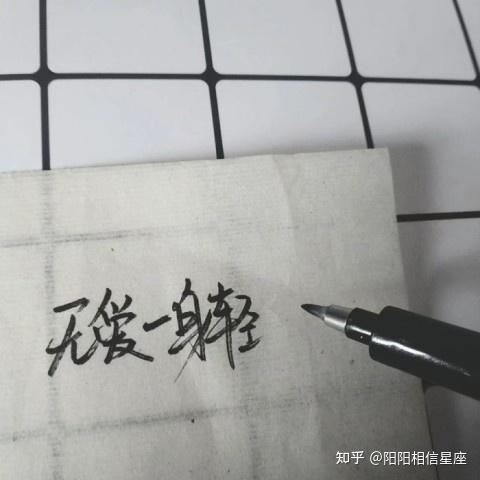 无爱一身轻
知乎 @阳阳相信星座